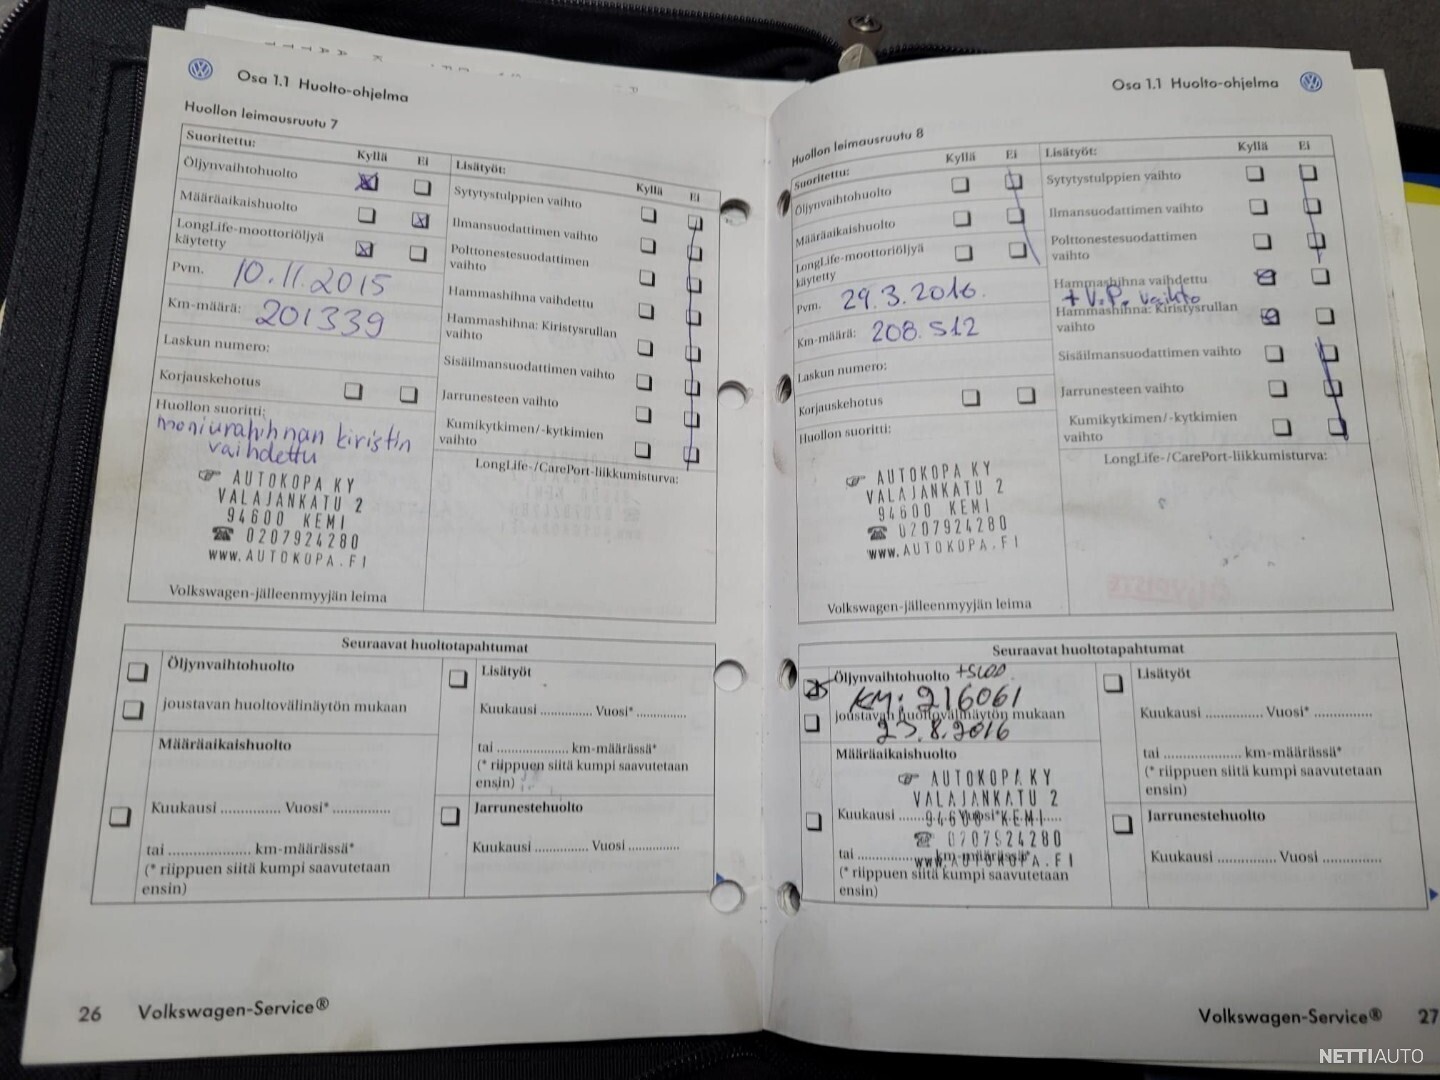 Osa 1.1 Huolto-ohjelma
Huollon leimausruutu 7
Suoritettu:
Kyllä Ei
Öljynvaihtohuolto
Määräaikaishuolto
LongLife-moottoriöljyä
käytetty
Pvm. 10.11.2015
Km-määrä: 201339
Laskun numero:
Korjauskehotus
Huollon suoritti:
moniurahihnan kiristin
vaihdettu
AUTOKOPA KY
VALAJANKATU 2
94600 KEMI
☎ 0207924280
www.AUTOKOPA.FI
Volkswagen-jälleenmyyjän leima
Lisätyöt:
Kyllä Ei
Sytytystulppien vaihto
Ilmansuodattimen vaihto
Polttonestesuodattimen
vaihto
Hammashihna vaihdettu
Hammashihna: Kiristysrullan
vaihto
Sisäilmansuodattimen vaihto
Jarrunesteen vaihto
Kumikytkimen/-kytkimien
vaihto
LongLife-/CarePort-liikkumisturva:
Seuraavat huoltotapahtumat
Öljynvaihtohuolto
joustavan huoltovälinäytön mukaan
Määräaikaishuolto
Kuukausi .............. Vuosi* .............
tai .................... km-määrässä*
(* riippuen siitä kumpi saavutetaan
ensin)
Lisätyöt
Kuukausi ............. Vuosi* .............
tai .................... km-määrässä*
(* riippuen siitä kumpi saavutetaan
ensin)
Jarrunestehuolto
Kuukausi .............. Vuosi .............
26 Volkswagen-Service®
Osa 1.1 Huolto-ohjelma
Huollon leimausruutu 8
Suoritettu:
Kyllä Ei
Öljynvaihtohuolto
Määräaikaishuolto
LongLife-moottoriöljyä
käytetty
Pvm. 29.3.2016.
Km-määrä: 208.512
Laskun numero:
Korjauskehotus
Huollon suoritti:
AUTOKOPA KY
VALAJANKATU 2
94600 KEMI
☎ 0207924280
www.AUTOKOPA.FI
Volkswagen-jälleenmyyjän leima
Lisätyöt:
Kyllä Ei
Sytytystulppien vaihto
Ilmansuodattimen vaihto
Polttonestesuodattimen
vaihto
Hammashihna vaihdettu
+ V.P. vaihto
Hammashihna: Kiristysrullan
vaihto
Sisäilmansuodattimen vaihto
Jarrunesteen vaihto
Kumikytkimen/-kytkimien
vaihto
LongLife-/CarePort-liikkumisturva:
Seuraavat huoltotapahtumat
Öljynvaihtohuolto
KM: 216061
joustavan huoltovälinäytön mukaan
23.8.2016
Määräaikaishuolto
AUTOKOPA KY
VALAJANKATU 2
Kuukausi .............. Vuosi* .............
94600 KEMI
☎ 0207924280
tai .................... km-määrässä*
www.AUTOKOPA.FI
(* riippuen siitä kumpi saavutetaan
ensin)
Lisätyöt
Kuukausi .............. Vuosi* .............
tai .................... km-määrässä*
(* riippuen siitä kumpi saavutetaan
ensin)
Jarrunestehuolto
Kuukausi .............. Vuosi .............
Volkswagen-Service® 27
NETTIAUTO